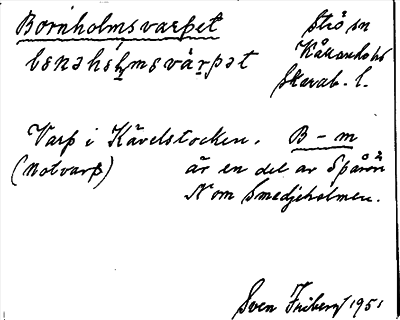 Bornholmsvarpet
Strö sn
Kåkinds hd
Skarab. l.
Varp i Kävelstocken. B-m
(Notvarp) är en del av Spårön
N om Smedjeholmen.
Sven Friberg 1951